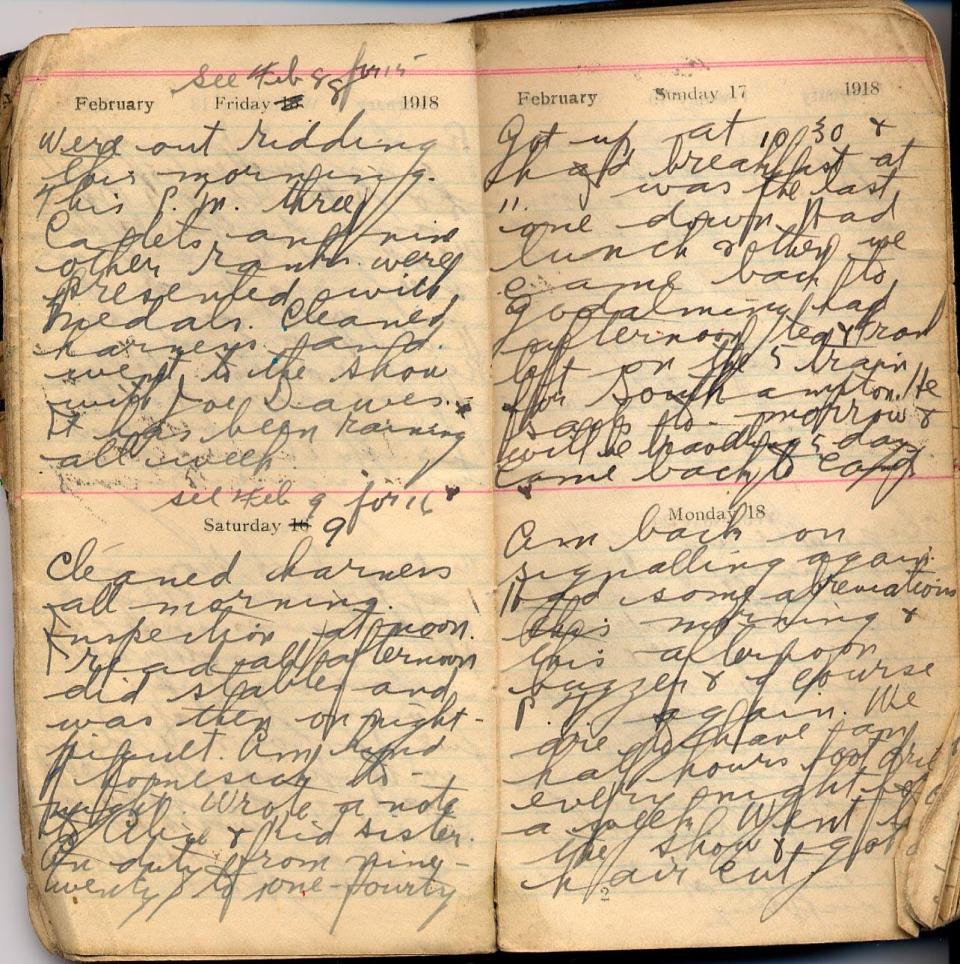 see Feb 8 for 15
February Friday 15 1918
Were out ridding
this morning.
This P.M. three
Cadets and nine
other ranks were
presented with
medals. Cleaned
harness and
went to the show
with Joe Dawes.
It has been raining
all week.
see Feb 9 for 16
Saturday 16 9
Cleaned harness
all morning.
Inspection at noon.
read all afternoon
did stables and
was then on night-
piquit. Am kind
homesick to-
night. Wrote a note
to Alice & kid sister.
On duty from nine-
twenty to one-fourty
February Sunday 17 1918
Got up at 10:30 &
had breakfast at
11. was the last
one down. Had
lunch & then we
came back to
Godalming had
afternoon tea &
left on the 5 train
for Southampton. He
to-morrow &
will be 5 day
Came back to Camp
Monday 18
Am back on
signalling again.
Had some abreviations
this morning &
this afternoon
buzzer & of course
P. again. We
are to have an
half hours foot drill
every night
a week. Went to
the show & got a
hair cut